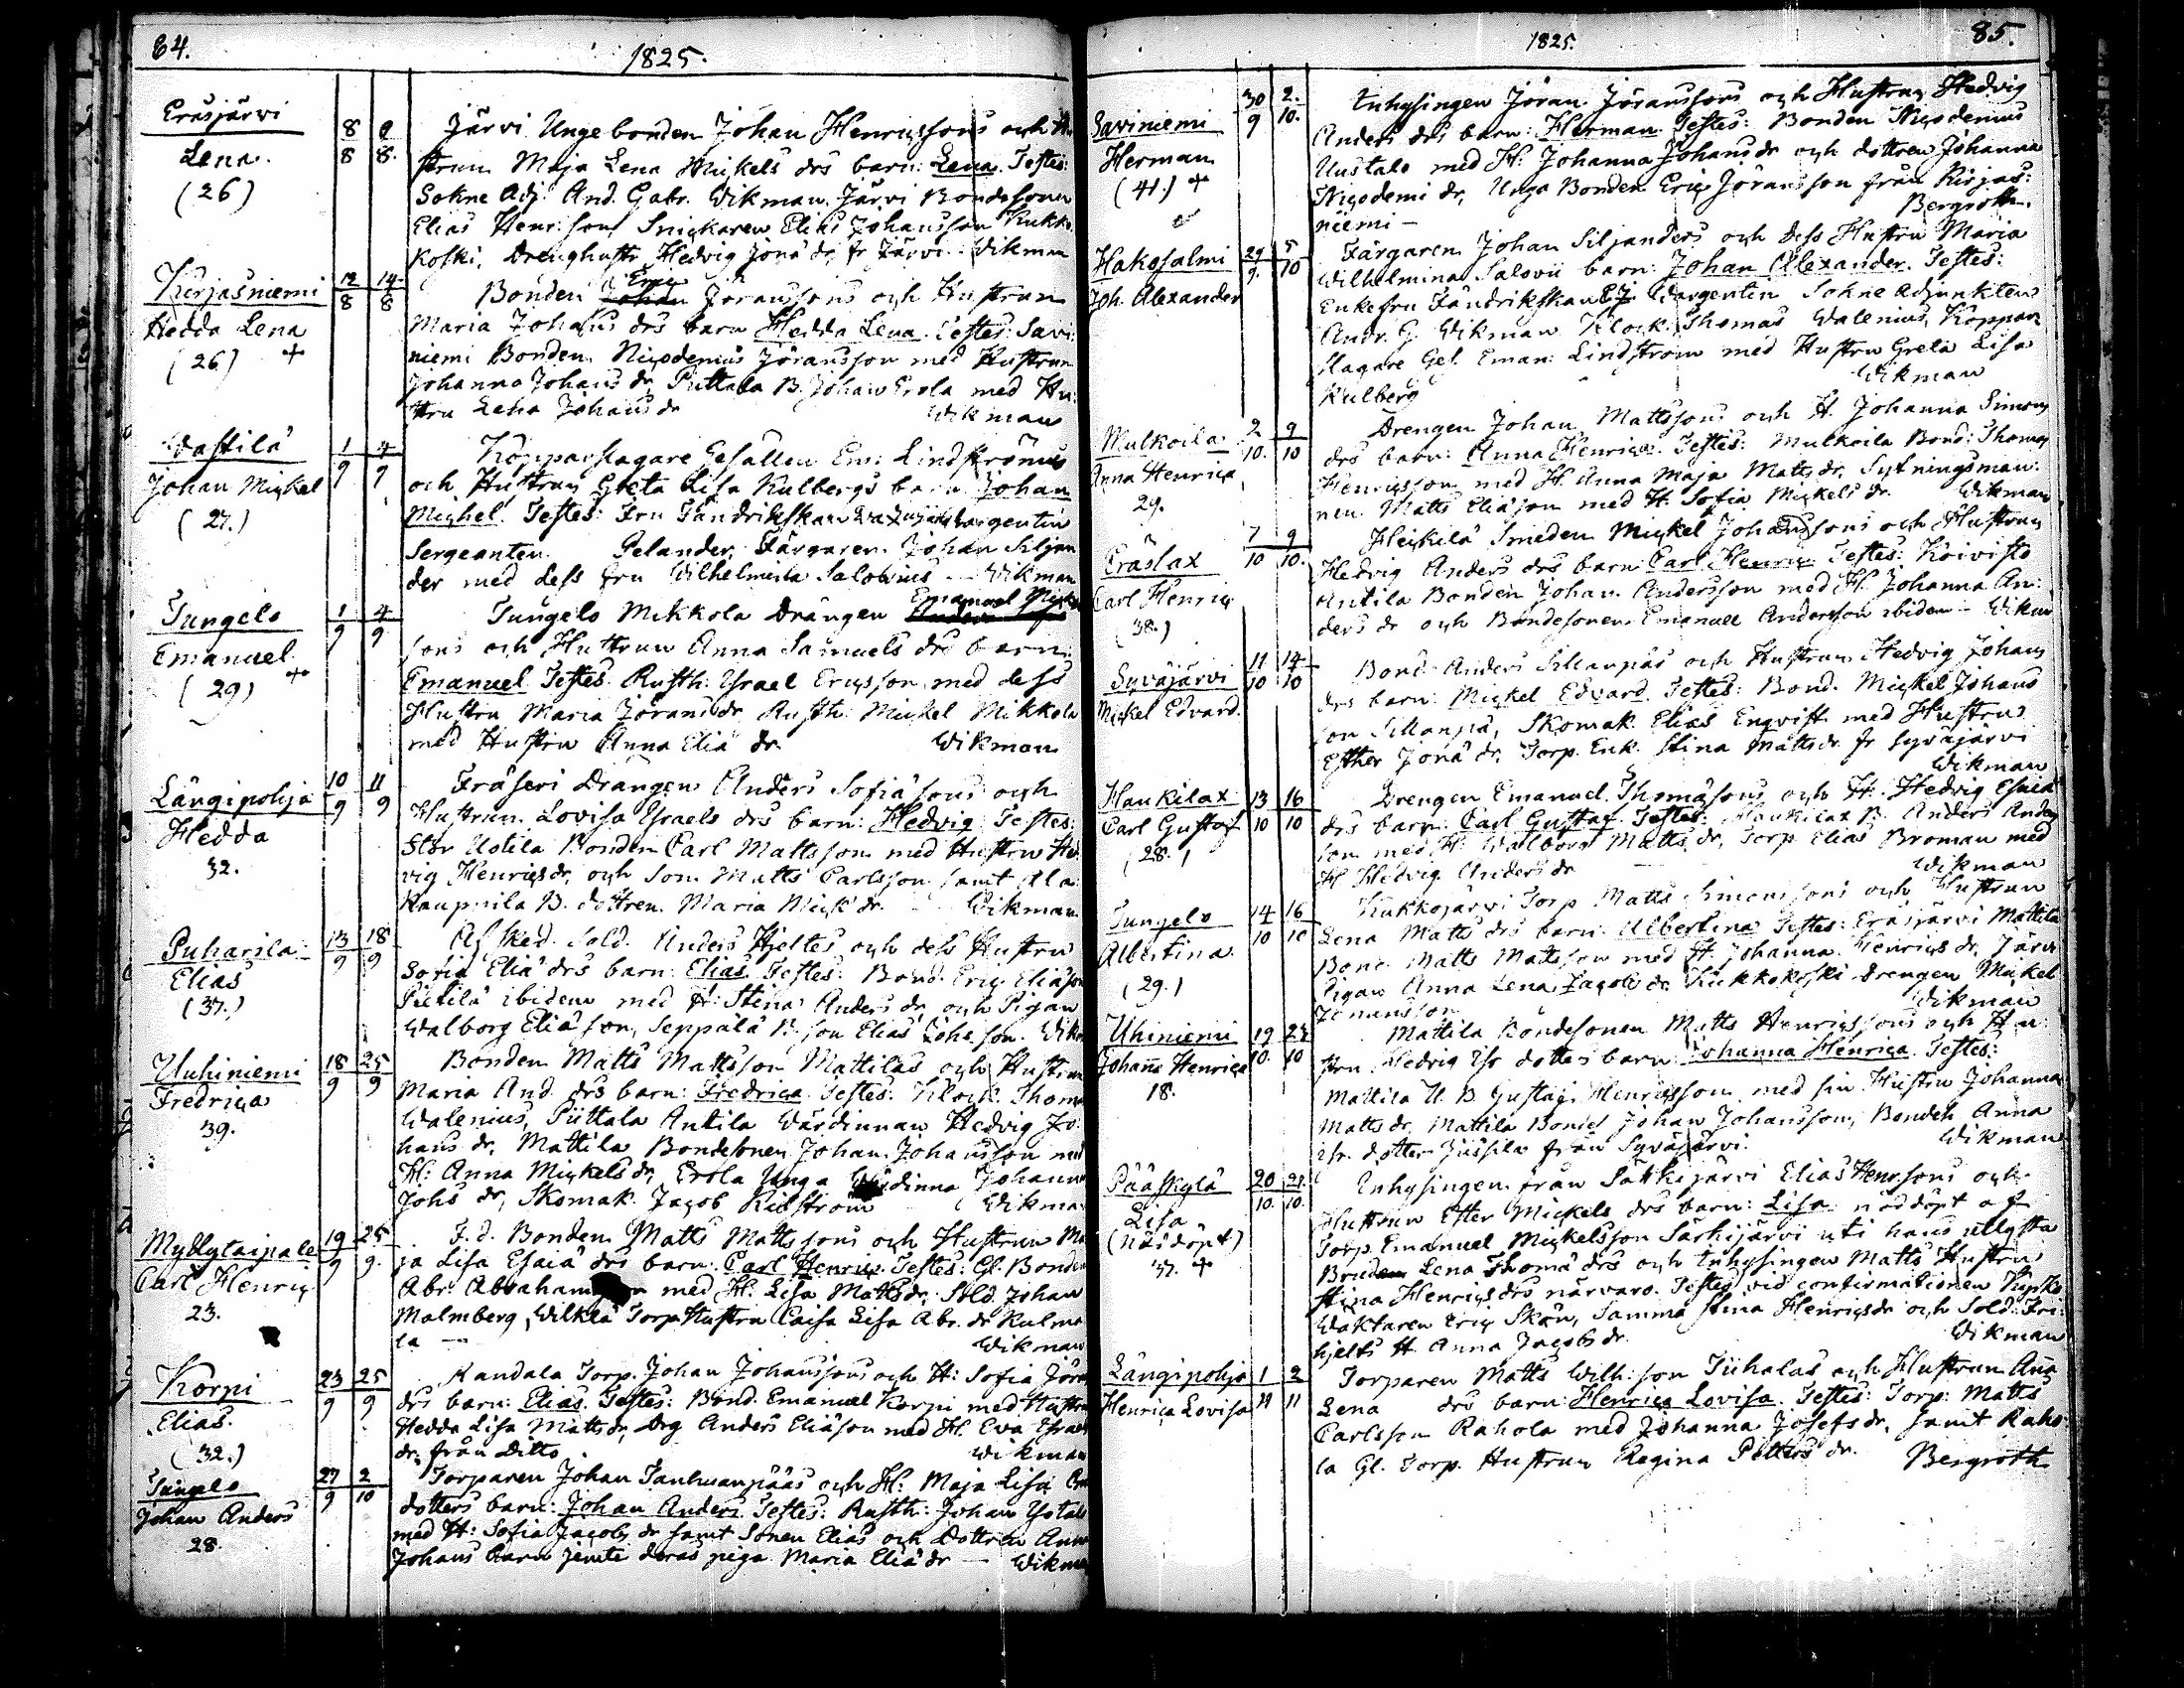 84.
1825.
Eräsjärvi
Lena.
(26)
8 8
8 8.
Järvi Unge bonden Johan Henricssons och Hu
strun Maja Lena Mickels drs barn: Lena. Testes:
Sokne Adj. And. Gabr. Wikman, Järvi Bondesonen
Elias Henr: son, Snickaren Elias Johansson Kukko
koski, Drenghustr. Hedvig Jonä dr fr Järvi. Wikman
Kirjasniemi
Hedda Lena
(26) +
12 14.
8 8
Eric
Bonden Johan Jöranssons och Hustrun
Maria Johans drs barn Hedda Lena. Testes: Savi
niemi Bonden Nicodemus Jöransson med Hustrun
Johanna Johans dr, Puttala B. Johan Erola med Hu:
stru Lena Johans dr Wikman
Wastilä
Johan Mickel
(27.)
1 4
9 9
Kopparslagare Gesällen Em: Lindströms
och Hustrun Greta Lisa Kulbergs barn Johan
Michel. Testes: Fru Fändrikskan Wargentin
Sergeanten Pelander, Färgaren Johan Siljan
der med dess Fru Wilhelmina Salovius Wikman
Jungelo
Emanuel
(29) +
1 4
9 9
Emanuel Mick
Jungelo Mikkola Drängen
sons och Hustrun Anna Samuels drs barn
Emanuel Testes Rusth: Israel Ericsson med dess
Hustru Maria Jörans dr Rusth: Mickel Mikkola
med Hustru Anna Eliä dr. Wikman
Längipohja
Hedda
32.
10 11
9 9
Fräseri Drangen Anders Sofiäsons och
Hustrun Lovisa Israels drs barn: Hedvig. Testes:
Stor Uotila Bonden Carl Mattsson med Hustru Hed
vig Henrics dr, och Son Matts Carlsson samt Ala
Kauppila B. dottren Maria Mick dr. Wikman
Puharila
Elias
(37.)
13 18
9 9
Afsked. Sold. Anders Hjeltes och dess Hustru
Sofia Eliä drs barn: Elias. Testes: Bond. Eric Eliäson
Pietilä ibidem med H: Stina Anders dr, och Pigan
Walborg Eliäson, Seppälä B. son Elias Johs son. Wikm
Uuhiniemi
Fredrica
39.
18 25
9 9
Bonden Matts Mattsson Mattilas och Hustrun
Maria And. drs barn: Fredrica Testes: Klock. Thom
Walenius, Püttala Antila Wärdinnan Hedvig Jo:
hans dr, Mattila Bondesonen Johan Johansson med
H: Anna Mickels dr, Erola Unga Wärdinna Johann
Johs dr, Skomak. Jacob Wikma
Myllytaipale
Carl Henric
23.
19 25
9 9.
F.d. Bonden Matts Mattssons och Hustrun Ma
ja Lisa Esaiä drs barn: Carl Henric. Testes: Gl. Bonden
Abr. Abrahamsson med H: Lisa Matts dr, Sold. Johan
Malmberg, Wilkkä Torp. Hustru Caisa Lisa Abr. dr Kulma
la — Wikman
Korpi
Elias.
(32.)
23 25
9 9
Kandala Torp. Johan Johanssons och H: Sofia Jöra
drs barn: Elias. Testes: Bond. Emanuel Korpi med Hustru
Hedda Lisa Matts dr, Drg Anders Eliäson med H. Eva Israel
dr, från Ditto Wikman
Jungelo
Johan Anders
28.
27 2
9 10
Torparen Johan Tanhuanpääs och H: Maja Lisa
dotters barn: Johan Anders. Testes: Rusth: Johan Ystalo
med H: Sofia Jacobs dr samt Sonen Elias och Dottren Anna
Johans Barn jemte deras piga Maria Eliä dr — Wikma
1825.
85.
Saviniemi
Herman
(41.) +
30 2.
9 10.
Inhysingen Jöran Jöranssons och Hustrun Hedvig
Anders drs barn: Herman. Testes: Bonden Nicodemus
Uustalo med H: Johanna Johans dr och dottren Johanna
Nicodemi dr, Unga Bonden Eric Jöransson från Kirjas:
niemi — Bergroth.
Hakosalmi
Joh. Alexander
29 5
9. 10
Färgaren Johan Siljanders och dess Hustru Maria
Wilhelmina Salovii barn: Johan Alexander. Testes:
Enkefru Fändrikskan Wargentin Sokne Adjunkten
Andr. G. Wikman Klock. Thomas Walenius, Koppar
slagare Ges. Eman: Lindström med Hustru Greta Lisa
Kulberg Wikman
Mulkoila
Anna Henrica
29.
2 9
10. 10
Drengen Johan Mattssons och H. Johanna Simons
drs barn: Anna Henrica. Testes: Mulkoila Bond: Thomas
Henricsson med H. Anna Maja Matts dr, Sytningsman:
nen Matts Eliäson med H. Sofia Mickels dr. Wikman
Eräslax
Carl Henric
(38.)
7 9
10 10.
Heickilä Smeden Mickel Johanssons och Hustrun
Hedvig Anders drs barn: Carl Henric Testes: Koivisto
Antila Bonden Johan Andersson med H. Johanna An:
ders dr och Bondesonen Emanuel Andersson ibidem — Wikm
Syväjärvi
Mickel Edvard.
11 14
10 10
Bond. Anders Sillanpääs och Hustrun Hedvig Johans
drs barn: Mickel Edvard. Testes: Bond. Mickel Johans
son Sillanpä, Skomak. Elias Enqvist med Hustru
Esther Jonä dr, Torp. Enk. Stina Matts dr fr Syväjärvi
Wikman
Haukilax
Carl Gustaf
(28.)
13 16
10 10
Drengen Emanuel Thomäsons och H: Hedvig Esaiä
drs barn: Carl Gustaf. Testes: Haukilax B. Anders Anders
son med H: Walborg Matts dr, Torp Elias Broman med
H Hedvig Anders dr Wikman
Jungelo
Albertina
(29.)
14 16
10 10
Kukkojärvi Torp. Matts Simonssons och Hustrun
Lena Matts drs barn: Albertina Testes: Eräsjärvi Mattila
Bond. Matts Mattsson med H. Johanna Henrics dr, Järvi
Pigan Anna Lena Jacobs dr Kukkokoski Drengen Mickel
Johansson Wikman
Uhiniemi
Johana Henrica
18.
19 23
10. 10
Mattila Bondesonen Matts Henricssons och Hu:
stru Hedvig Isr dotters barn: Johanna Henrica. Testes:
Mattila U. B. Gustaf Henricsson med sin Hustru Johanna
Matts dr, Mattila Bond Johan Johansson, Bondeh. Anna
Isr. dotter Jussila från Syväjärvi. Wikman
Pääskylä
Lisa
(nöddöpt)
37. +
20 21
10. 10.
Inhysingen från Särkijärvi Elias Henr.sons och
Hustrun Ester Mickels drs barn: Lisa nöddöpt af
Torp. Emanuel Mickelsson Särkijärvi uti hans utlysta
Lena Thomä drs och Inhysingen Matts Hustru
Stina Henrics drs närvaro. Testes vid confirmationen Kyrko
Waktaren Eric Skön, Samma Stina Henrics dr och Sold. Fri:
hjelts H Anna Jacobs dr. Wikman
Längipohja
Henrica Lovisa
1 2
11 11
Torparen Matts Wilh:son Tuhalas och Hustrun Ana
Lena drs barn: Henrica Lovisa. Testes: Torp: Matts
Carlsson Rahola med Johanna Josefs dr, samt Raho
la Gl. Torp. Hustrun Regina Petters dr. Bergroth